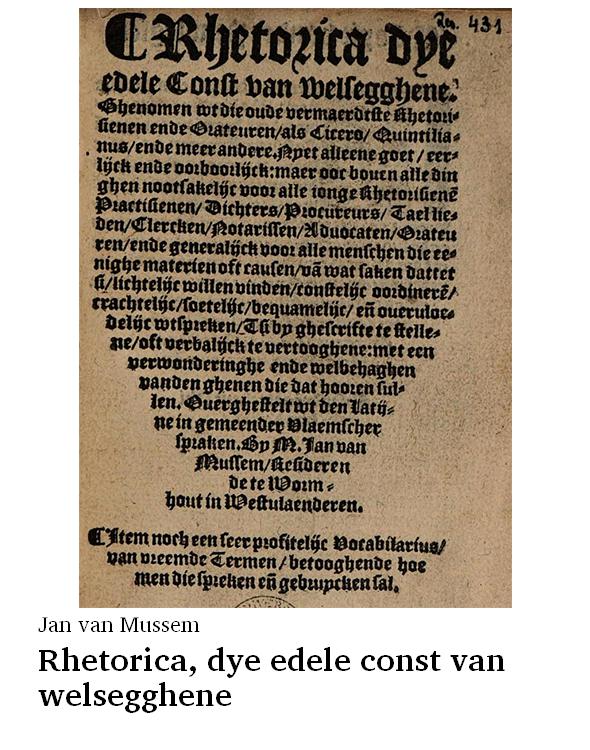 Rhetorica dye
Rea. 431
edele Const van welsegghene.
Ghenomen wt die oude vermaerdtste Rhetori=
sienen ende Orateuren/als Cicero/ Quintilia=
nus/ende meer andere. Nyet alleene goet / eer=
lijck ende oorboorlijck: maer ooc bouen alle din
ghen nootsakelijc voor alle ionge Rhetorisienē
Practisienen/ Dichters/Procureurs/ Taellie=
den/Clercken/Notarissen/Aduocaten/Orateu
ren/ende generalijck voor alle menschen die ee=
nighe materien oft causen/vā wat saken dattet
si/lichtelijc willen vinden/constelijc oordinerē/
crachtelijc/soetelijc/bequamelijc/ eñ oueruloe=
delijc wtspreken/Tsi by ghescrifte te stelle=
ne/oft verbalijck te vertooghene: met een
verwonderinghe ende welbehaghen
vanden ghenen die dat hooren sul=
len. Ouerghestelt wt den Latij=
ne in gemeender Vlaemscher
spraken. By M. Jan van
Mussem/Resideren
de te Worm=
hout in Westulaenderen.
Item noch een seer profitelijc Vocabilarius/
van vreemde Termen/betooghende hoe
men die spreken eñ gebruycken sal.
Jan van Mussem
Rhetorica, dye edele const van
welsegghene